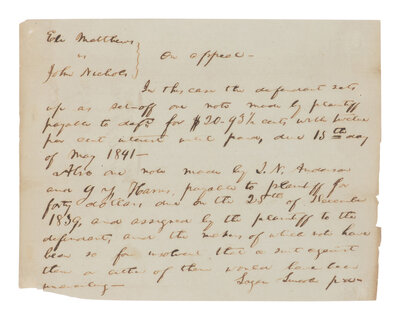 Eli Matthews
vs
John Nichols
On appeal —
In this case the defendant sets
up as set-off one note made by plaintiff
payable to deft for $20-93¾ cents with twelve
per cent interest until paid, due 15th day
of May 1841 —
Also one note made by J. N. Anderson
and G Y Harris, payable to plaintiff for
forty dollars, due on the 25th of December
1839, and assigned by the plaintiff to the
defendant, and the makers of which note have
been so far insolvent that a suit against
them or either of them would have been
unavailing —